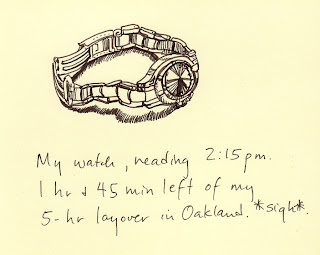 My watch, reading 2:15pm.
1 hr & 45 min left of my
5-hr layover in Oakland. *sigh*.